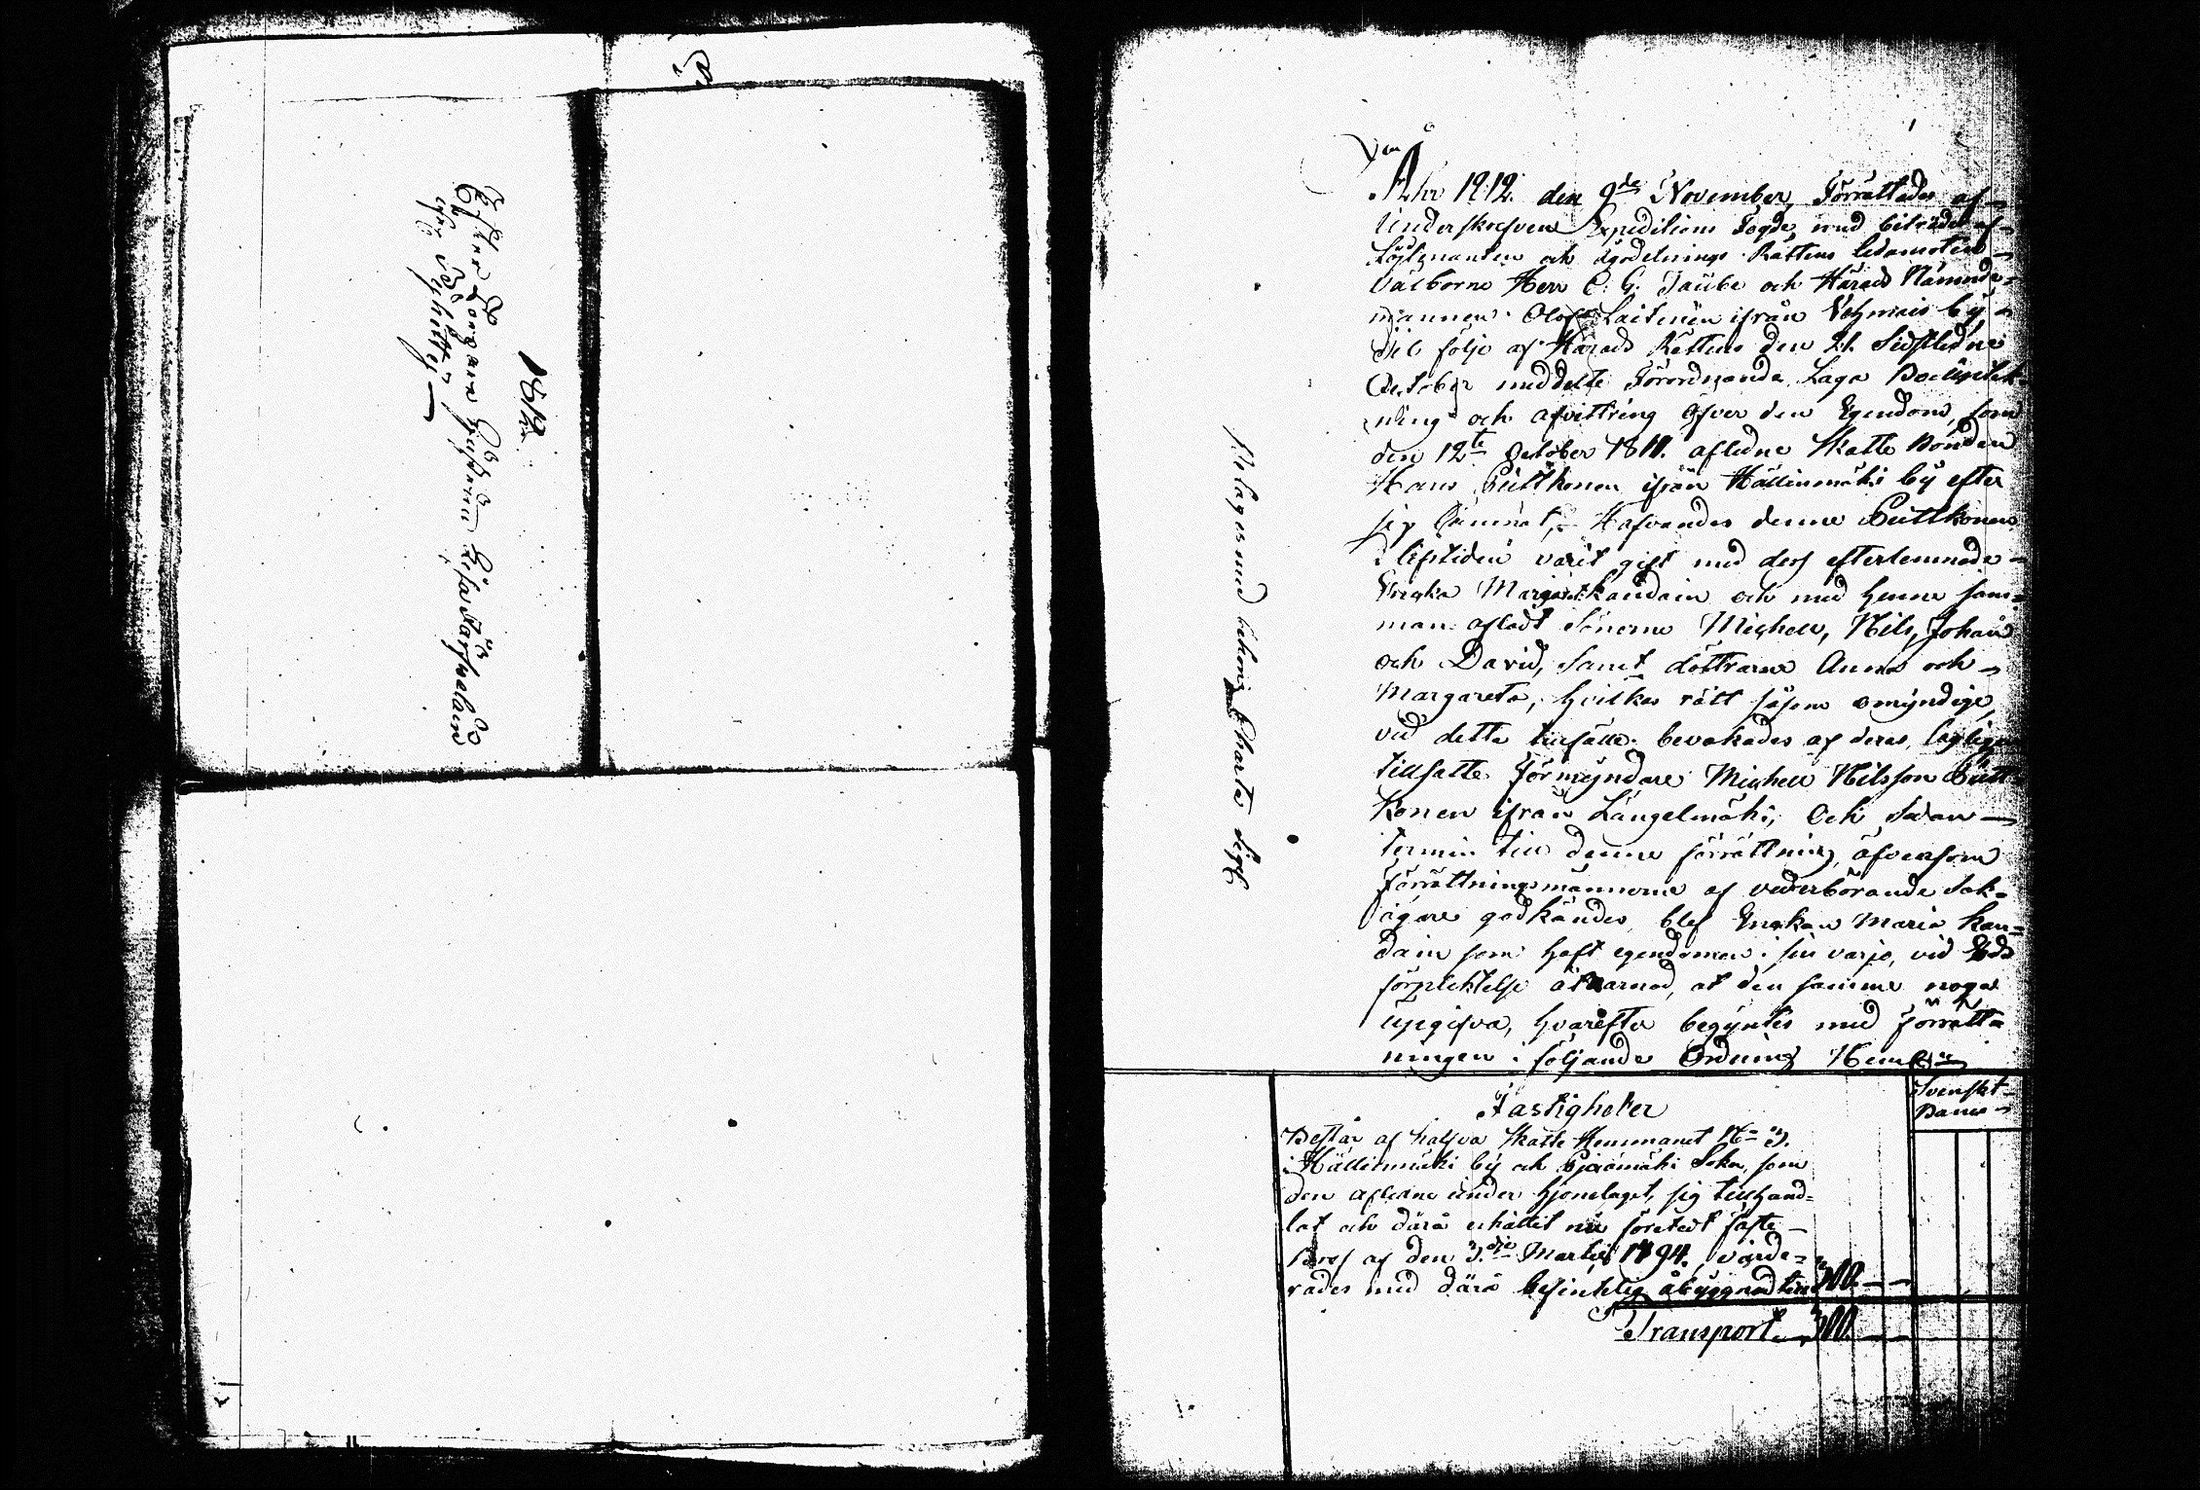 1812
Efter Torparen
Lisa Parfvelain
År 1812 den 9de November, Förrättades af
Underskrefven Expeditions Fogde, med biträde af
Löjtenanten och Ägodelnings Rättens ledamoten
Välborne Herr C: G: Taube och Härads Nämnde-
mannen Olof Laitinen ifrån Vehmais by
til följe af Härads Rättens den 21 Sidstledne
October meddelte Förordnande Laga Bouptek-
ning och afvittring öfver den Egendom, som
den 12te October 1811. afledne Skatte Bonden
Hans Puttkonen ifrån Hällinmäki by efter
sig lämnat, Hafvandes denne Puttkonen
i lifstiden varit gift med dess efterlemnade
Enka Margaret: Kaudain och med henne sam-
man afladt Sönerne Michell, Nils, Johan
och David, samt döttrarne Anna och
Margareta, hvilkas rätt såsom omyndige,
vid detta tillfälle bevakades af deras lagligen
tillsatte Förmyndare Michell Nilsson Putt-
konen ifrån Längelmäki; Och Sedan
termin till denne förrättning, äfvensom
Förrättningsmännerne af vederbörande Sak-
ägare godkändes, blef Enkan Maria Kau-
dain som haft egendomen i sin varjo, vid Eds
förplicktelse åtvarnad, at den samme noga
upgifva, hvarefter begyntes med Förrätt-
ningen i följande Ordning Nem
belages med behörig Charta Sigil
Fastigheter
Svenskt
Banco
Består af halfva Skatte Hemmanet No 3.
i Hällinmäki by och Pjexämäki Sokn, som
den afledne under hjonelaget, sig tillhand-
lat och därå erhållit nu företedt faste
Bref af den 3die Martii 1794., värde-
rades med därå befintelig åbyggnad till 300.
Transport 300.